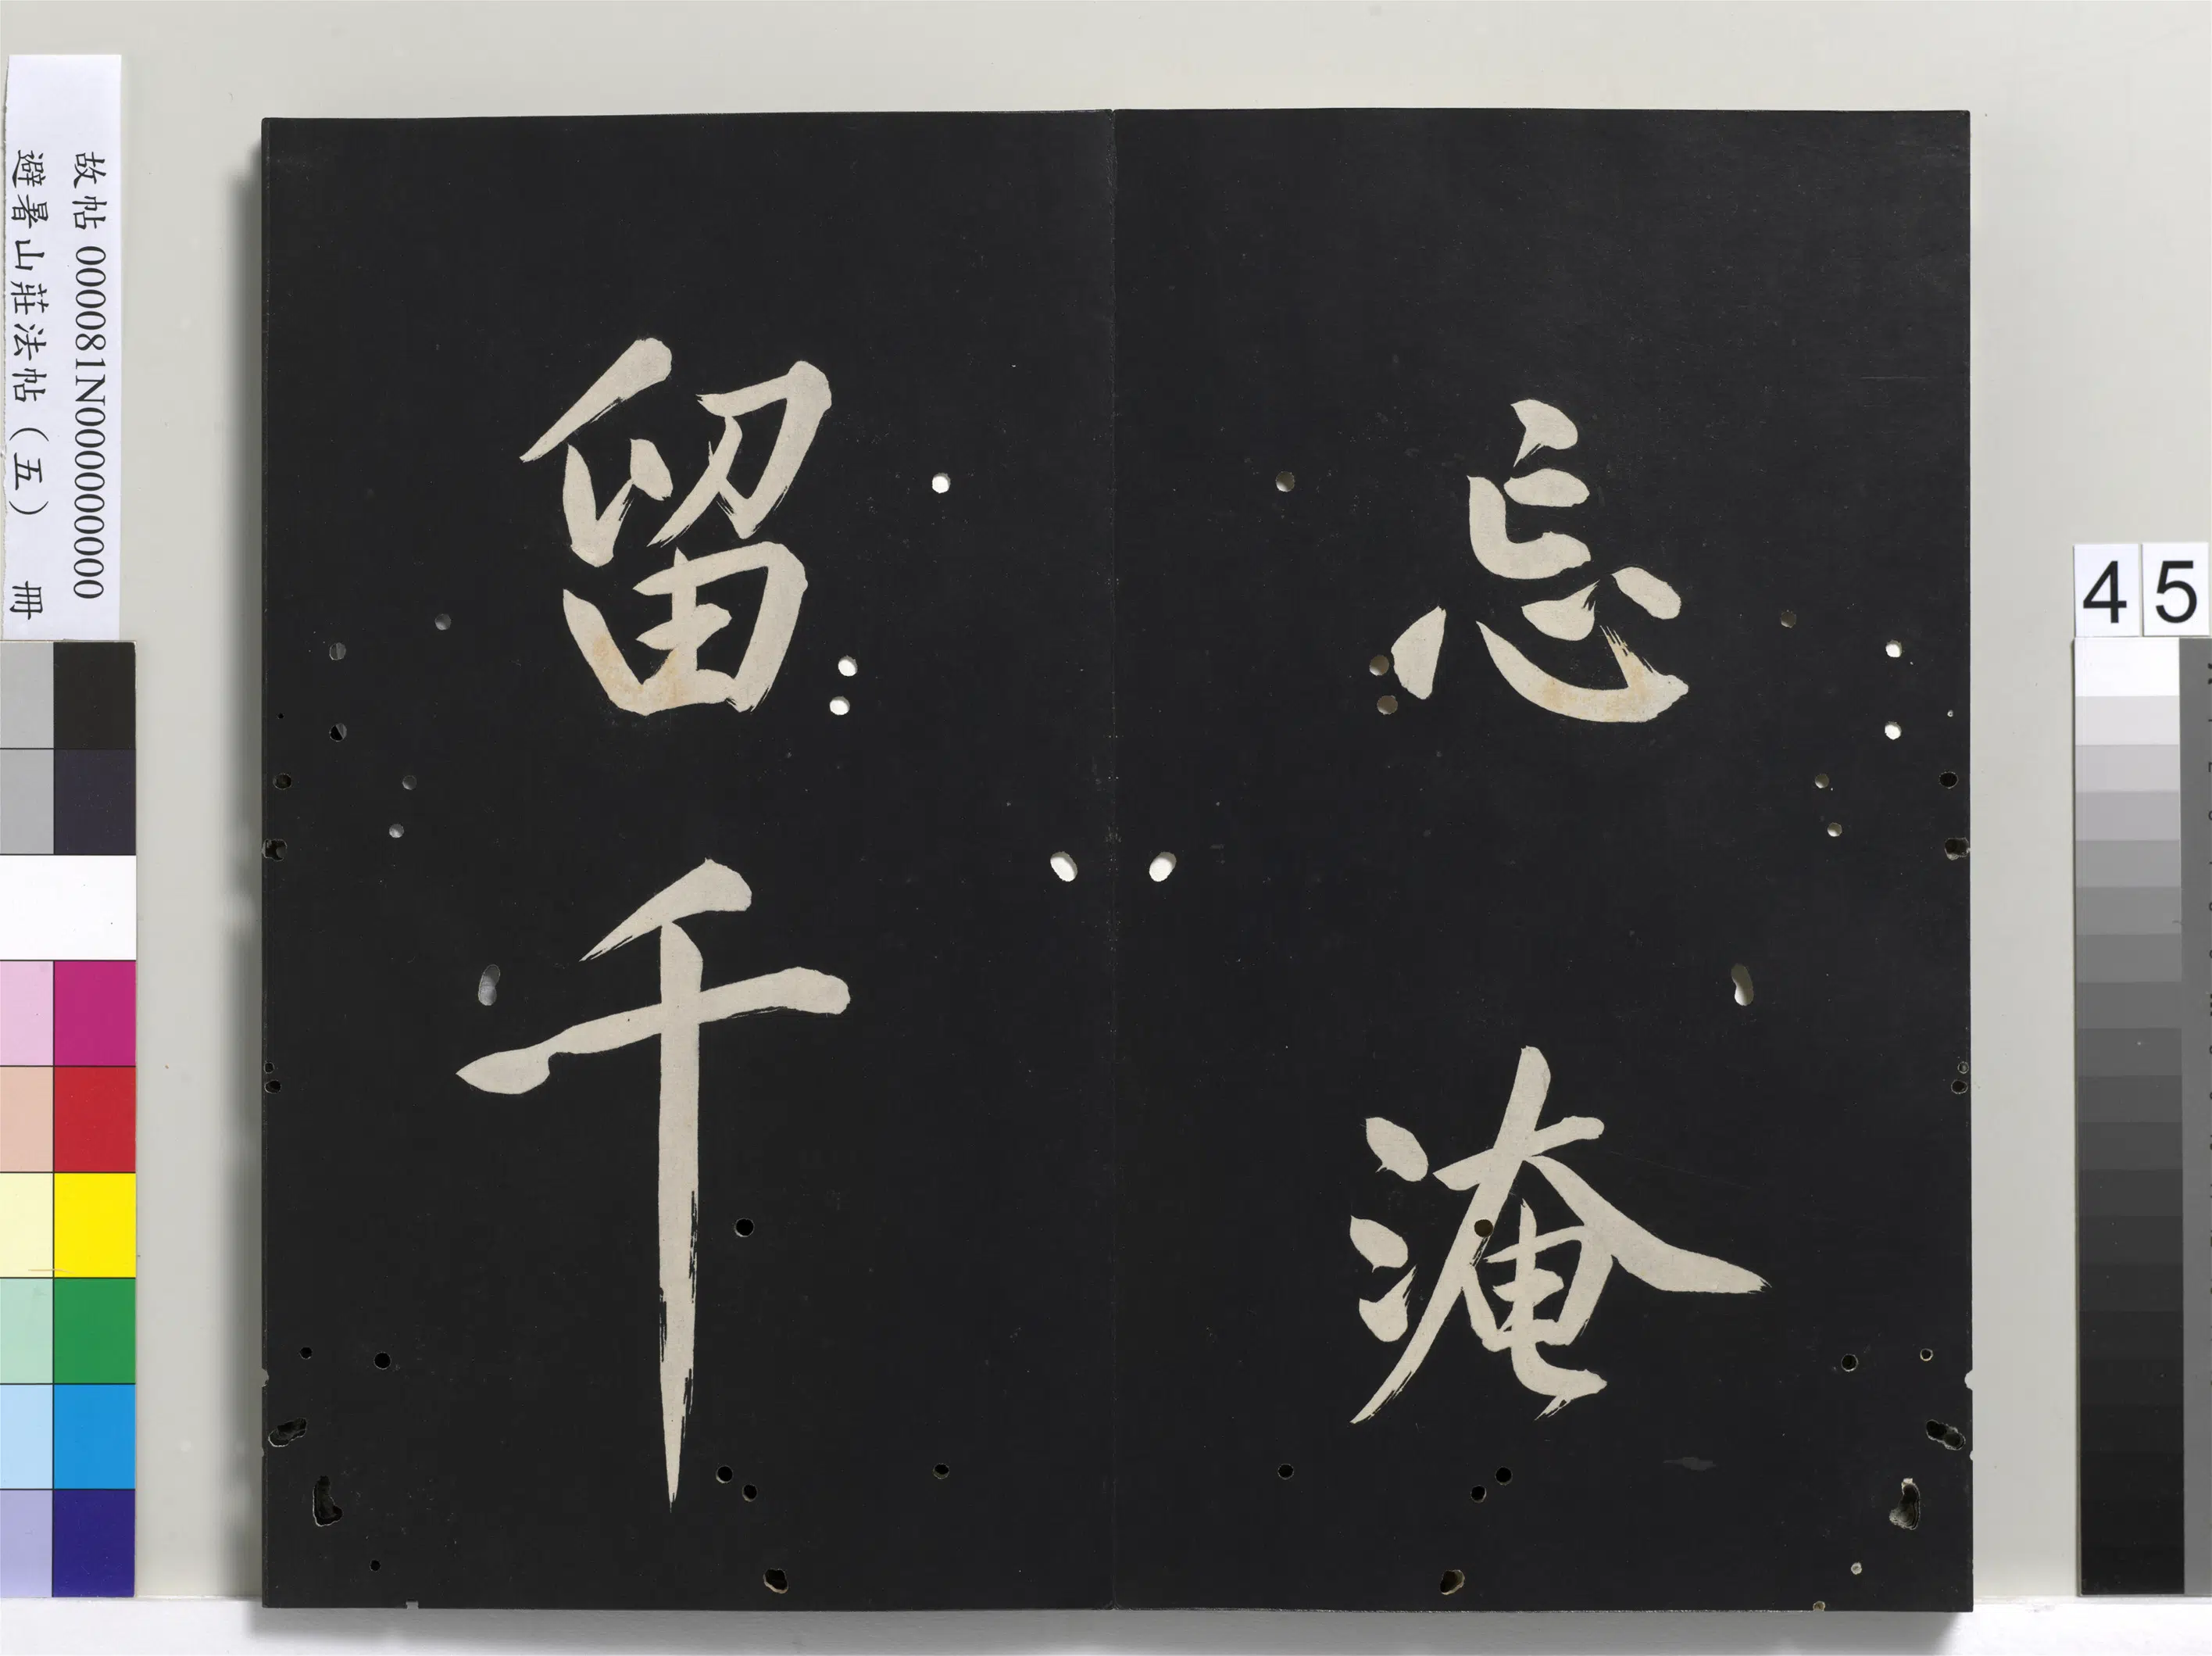 忘淹
留千
故帖 000081N000000000
避暑山莊法帖（五） 冊
45